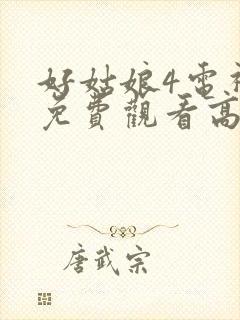 好姑娘4電
免費觀看高
唐武宗